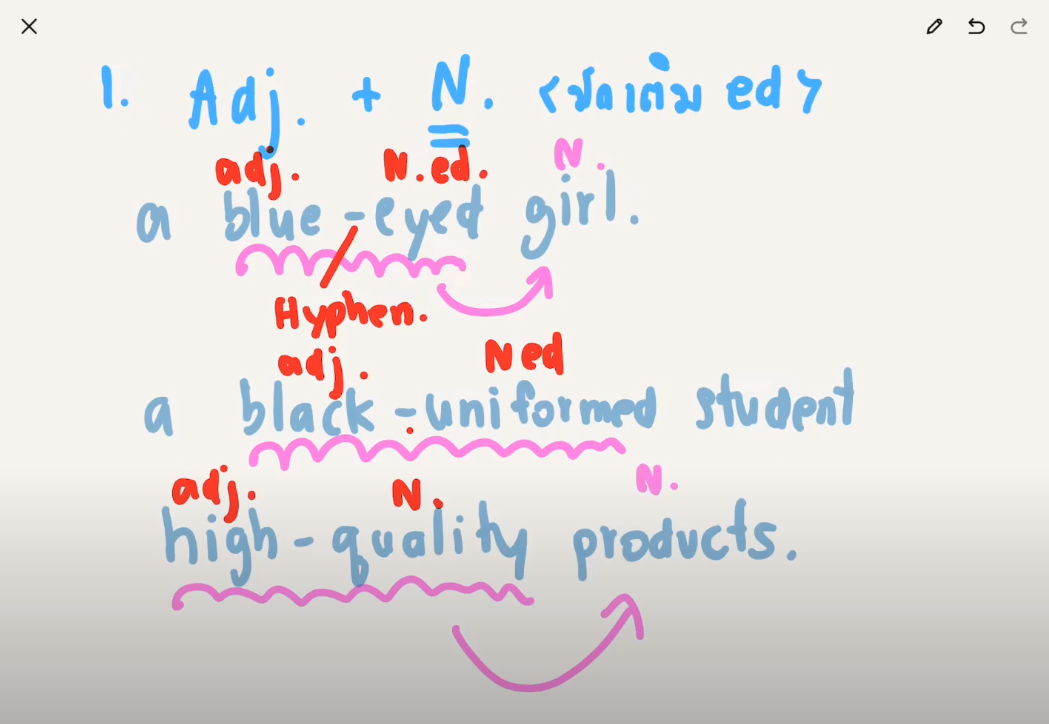 1. Adj. + N. < เติม ed >
adj. N.ed. N.
a blue-eyed girl.
Hyphen.
adj. Ned
a black-uniformed student
adj. N. N.
high-quality products.